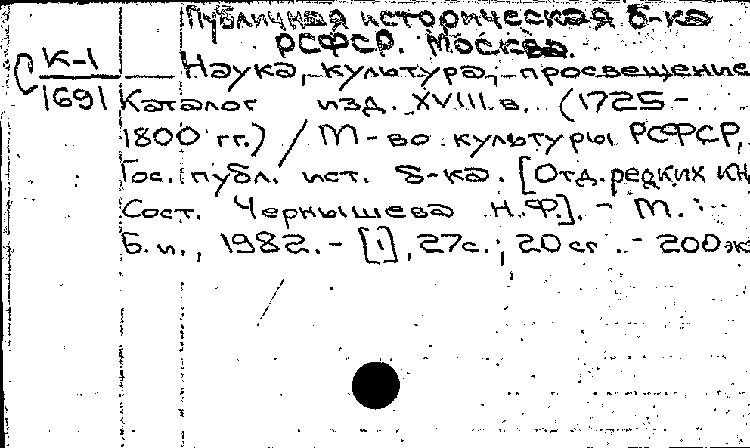 Публичная историческая б-ка
РСФСР. Москва.
С К-1
1691
Наука, культура, просвещение
Каталог изд. XVIII в. (1725-
1800 гг.) / М-во культуры РСФСР,
Гос. публ. ист. б-ка. [Отд. редких кн.
Сост. Чернышева Н.Ф.]. - М.:
Б.и., 1982. - [1], 27с.; 20 см. - 200 эк